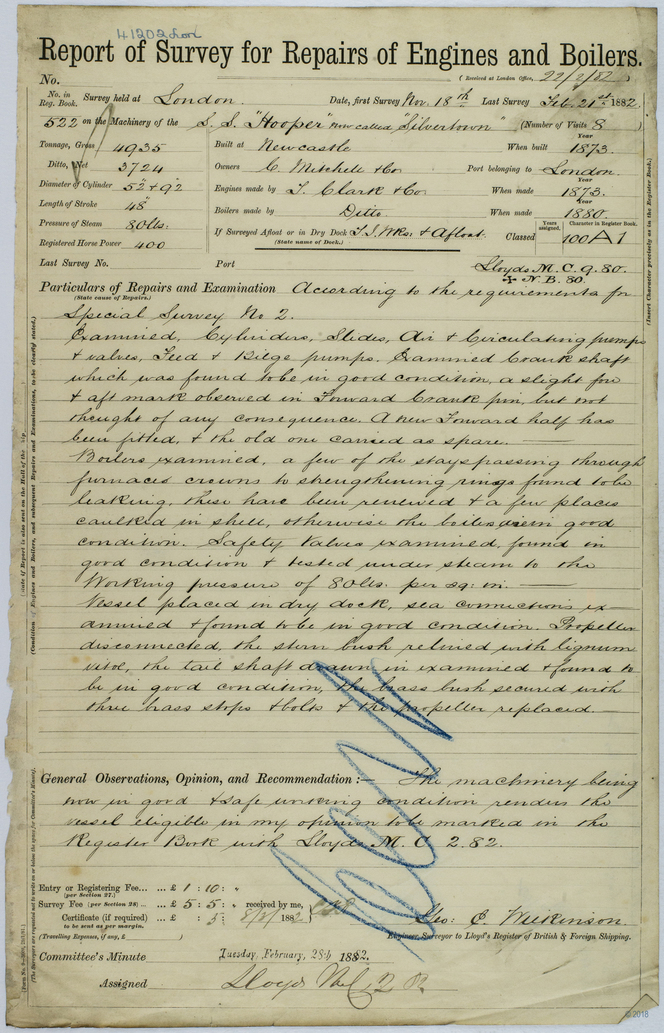 41202 Lon
Report of Survey for Repairs of Engines and Boilers.
No. (Received at London Office, 22/2/82)
No. in Reg. Book. Survey held at London. Date, first Survey Nov. 18th Last Survey Feb. 21st 1882
522 on the Machinery of the S.S. "Hooper" now called "Silvertown" (Number of Visits 8
Tonnage, Gross 4935
Ditto, Net 3724
Diameter of Cylinder 52" & 92"
Length of Stroke 48"
Pressure of Steam 80lbs.
Registered Horse Power 400
Built at Newcastle When built 1873.
Owners C. Mitchell & Co Port belonging to London.
Engines made by T. Clark & Co. When made Year 1873.
Boilers made by Ditto When made Year 1880.
If Surveyed Afloat or in Dry Dock T.I. Wks. & Afloat.
(State name of Dock.)
Classed Years assigned, 100 Character in Register Book. A1
Last Survey No. Port Lloyds M.C. 9.80.
N.B. 80.
Particulars of Repairs and Examination According to the requirements for
(State cause of Repairs.)
Special Survey No 2.
Examined, Cylinders, Slides, Air & Circulating pumps
& valves, Feed & Bilge pumps. Examined Crank shaft
which was found to be in good condition, a slight fore
& aft mark observed in Forward Crank pin, but not
thought of any consequence. A new Forward half has
been fitted, & the old one carried as spare.
Boilers examined, a few of the stays passing through
furnaces crowns to strengthening rings found to be
leaking, these have been renewed & a few places
caulked in shell, otherwise the boilers were in good
condition. Safety Valves examined, found in
good condition & tested under steam to the
Working pressure of 80lbs. per sq: in.
Vessel placed in dry dock, sea connections ex-
amined & found to be in good condition. Propeller
disconnected, the stern bush relined with lignum
vitæ, the tail shaft drawn in examined & found to
be in good condition, the brass bush secured with
three brass stops & bolts & the propeller replaced.
General Observations, Opinion, and Recommendation :— The machinery being
now in good & safe working condition renders the
vessel eligible in my opinion to be marked in the
Register Book with Lloyds M.C 2.82.
Entry or Registering Fee... ... £ 1 : 10 : "
(per Section 27.)
Survey Fee (per Section 28) ... ... £ 5 : 5 : " received by me,
Certificate (if required) ... £ : 5 : 1882
to be sent as per margin.
(Travelling Expenses, if any, £ )
Geo: C Wilkinson
Engineer Surveyor to Lloyd's Register of British & Foreign Shipping.
Committee's Minute Tuesday, February, 28th 1882.
Assigned Lloyds M C 2 82
© 2018